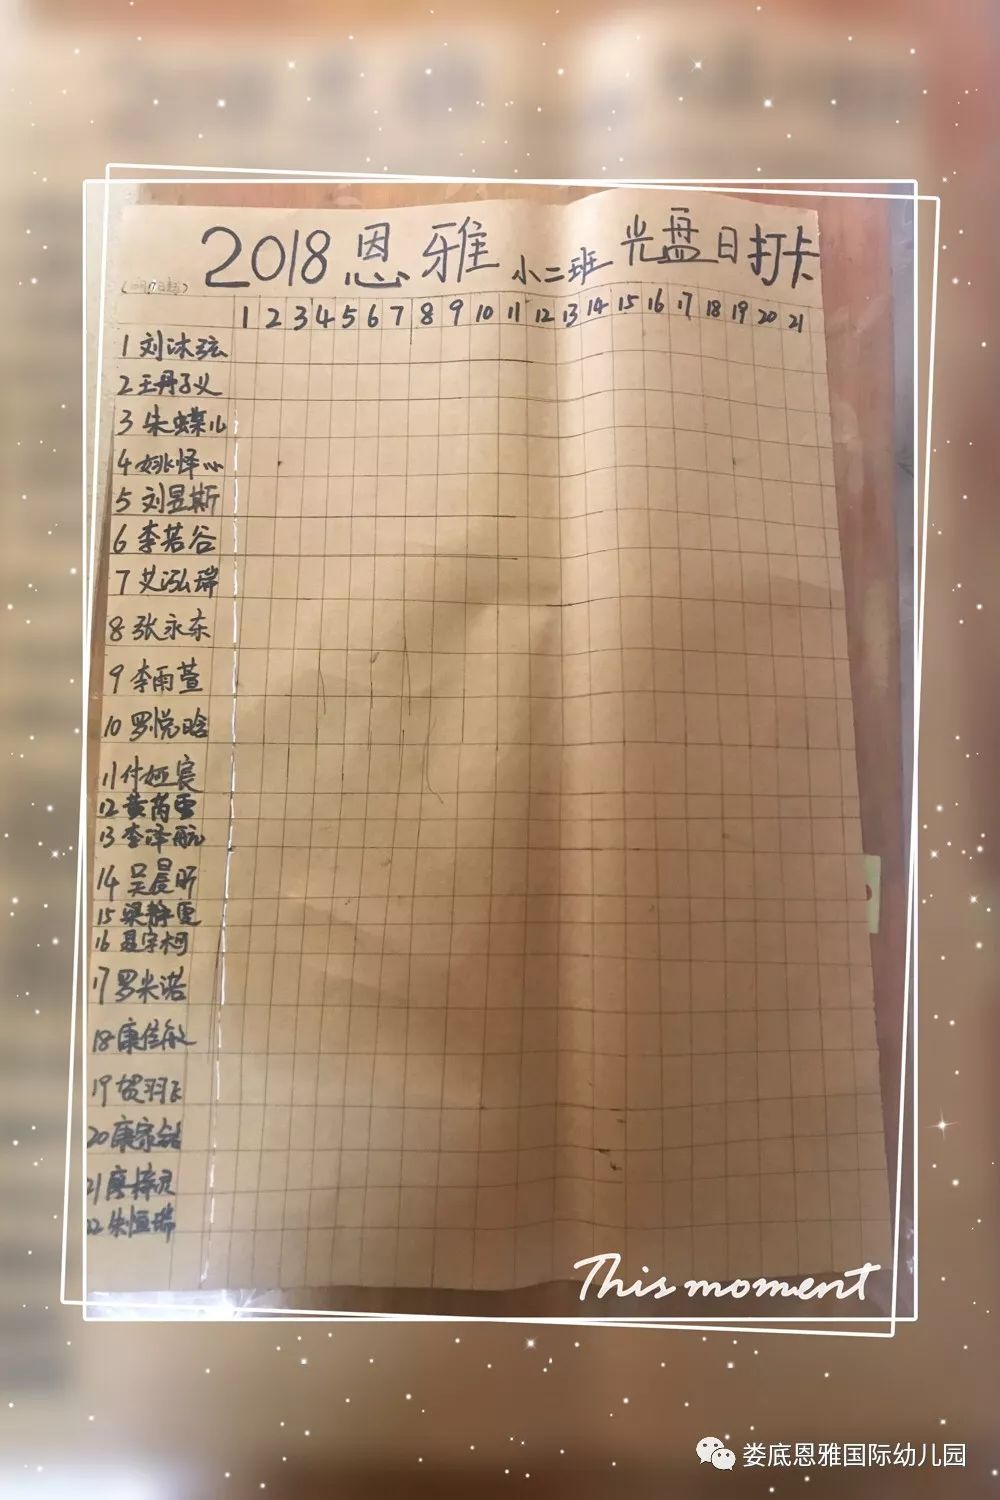 2018恩雅小二班光盘日打卡
1 2 3 4 5 6 7 8 9 10 11 12 13 14 15 16 17 18 19 20 21
1 刘沐弦
2 王丹子义
3 朱蝶儿
4 姚怿心
5 刘昱斯
6 李若谷
7 艾泓瑞
8 张永东
9 李雨萱
10 罗悦晗
11 付娅宸
12 黄芮雪
13 李泽航
14 吴晨昕
15 梁静雯
16 聂宇柯
17 罗米诺
18 康佳敏
19 贺羽飞
20 康家
21 廖梓灵
22 朱恒瑞
This moment
娄底恩雅国际幼儿园